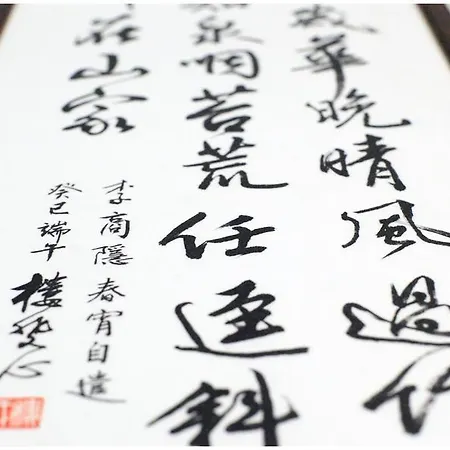 歲華晚晴風過竹
知泉咽苔荒任逕斜
在山家
李商隱 春宵自遣
癸巳端午 樓心